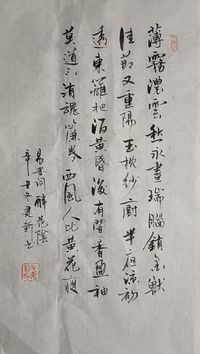 薄霧濃雲愁永晝瑞腦銷金獸
佳節又重陽玉枕紗廚半夜涼初
透東籬把酒黃昏後有暗香盈袖
莫道不消魂簾卷西風人比黃花瘦
易安詞醉花陰
辛丑 建新書